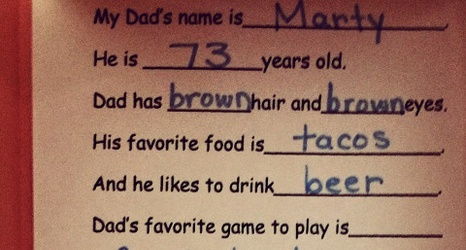 My Dad's name is Marty.
He is 73 years old.
Dad has brown hair and brown eyes.
His favorite food is tacos.
And he likes to drink beer.
Dad's favorite game to play is